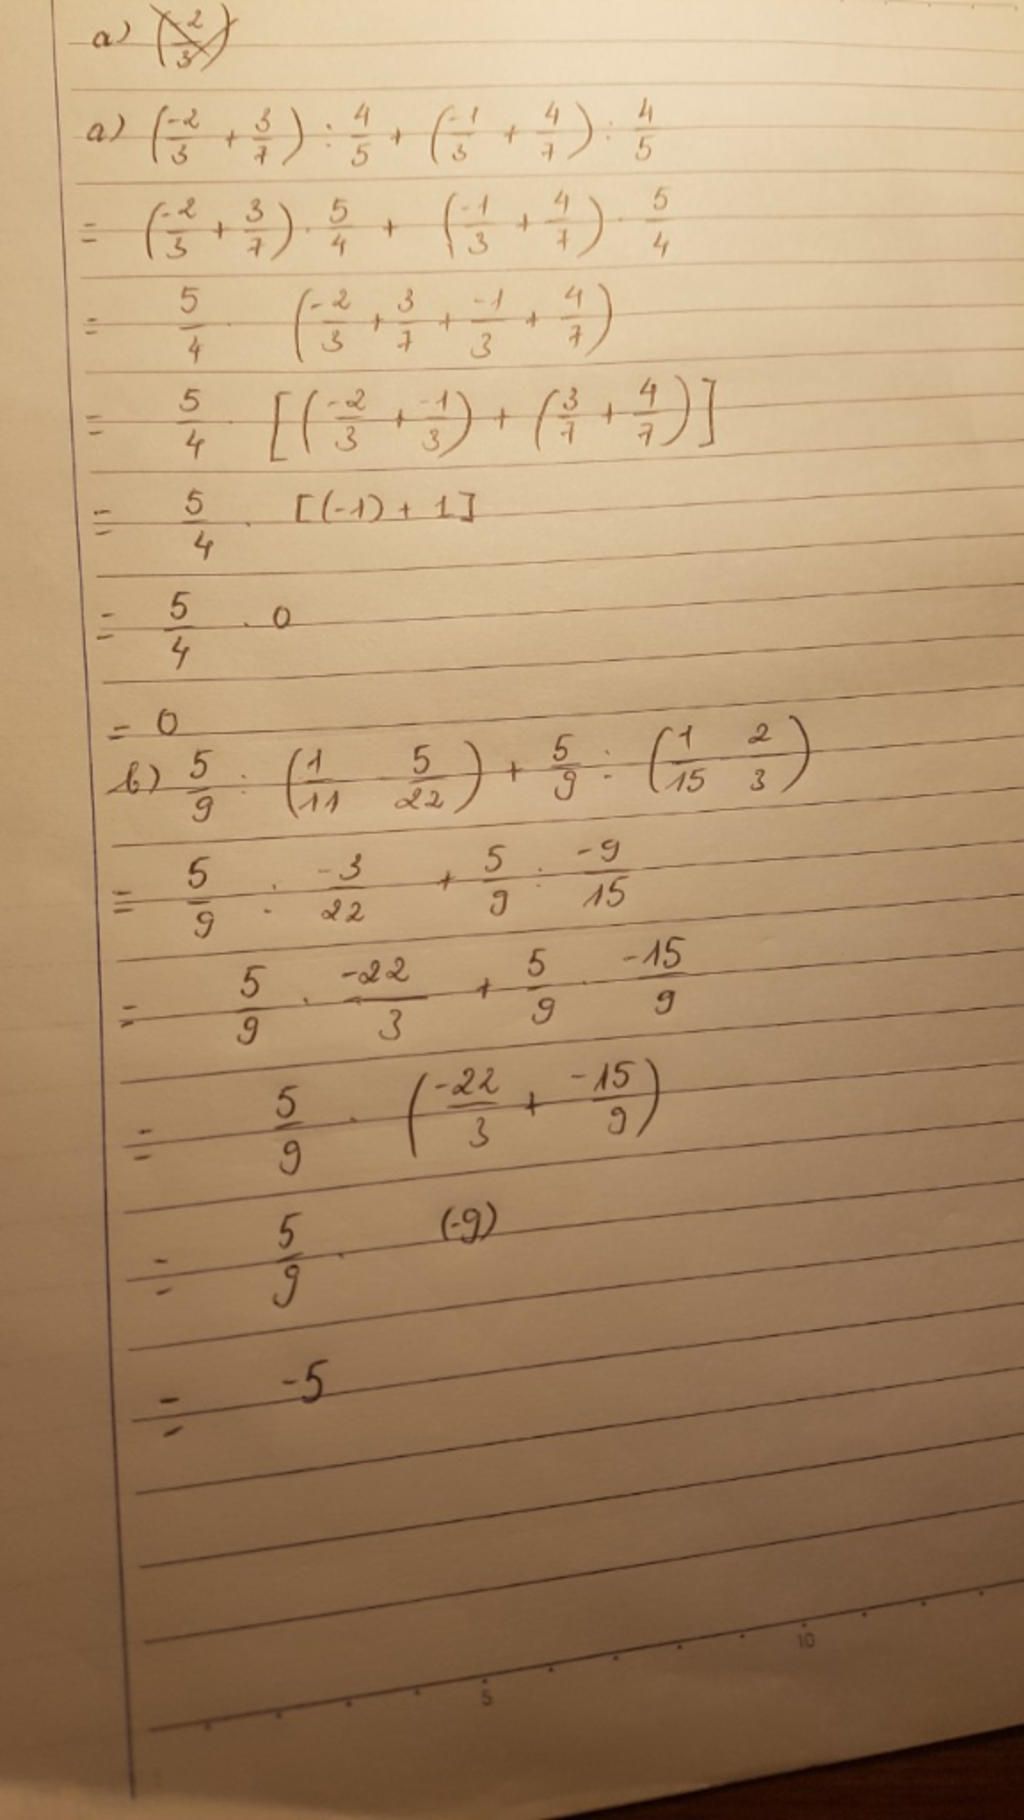 a) (-2/3)
a) (-2/3 + 3/7) : 4/5 + (-1/3 + 4/7) : 4/5
= (-2/3 + 3/7) · 5/4 + (-1/3 + 4/7) · 5/4
= 5/4 · (-2/3 + 3/7 + -1/3 + 4/7)
= 5/4 · [(-2/3 + -1/3) + (3/7 + 4/7)]
= 5/4 · [(-1) + 1]
= 5/4 · 0
= 0
b) 5/9 : (1/11 - 5/22) + 5/9 : (1/15 - 2/3)
= 5/9 : -3/22 + 5/9 : -9/15
= 5/9 · -22/3 + 5/9 · -15/9
= 5/9 · (-22/3 + -15/9)
= 5/9 · (-9)
= -5
5 10